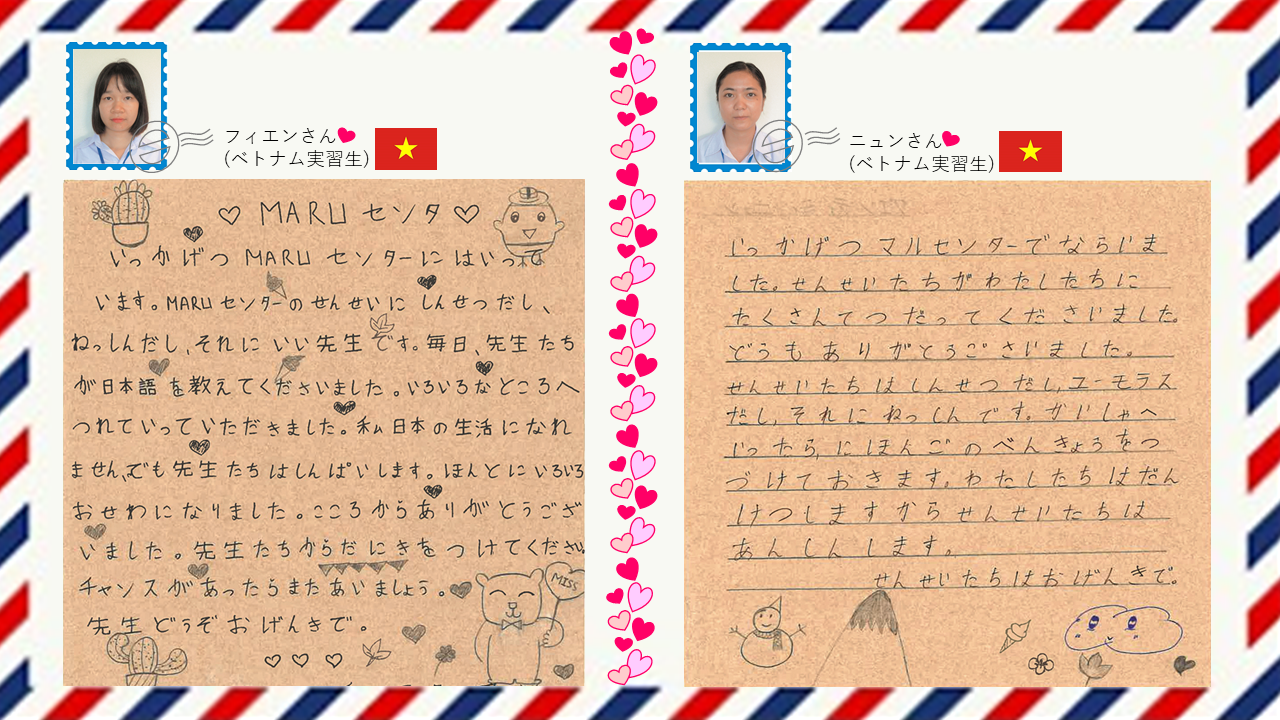 フィエンさん
(ベトナム実習生)
MARU センタ
いっかげつ MARU センターにはいって
います。MARUセンターのせんせいに しんせつだし、
ねっしんだし、それに いい先生です。毎日、先生たち
が日本語を教えてくださいました。いろいろなところへ
つれていっていただきました。私日本の生活になれ
ません、でも先生たちはしんぱいします。ほんとにいろいろ
おせわになりました。こころからありがとうござ
いました。先生たちからだにきをつけてください
チャンスがあったらまたあいましょう。
先生どうぞおげんきで。
MISS
ニュンさん
(ベトナム実習生)
いっかげつマルセンターでならいま
した。せんせいたちがわたしたちに
たくさんてつだってくださいました。
どうもありがとうございました。
せんせいたちはしんせつだし、ユーモラス
だし、それにねっしんです。がいしゃへ
いったら、にほんごのべんきょうをつ
づけておきます。わたしたちはだん
けつしますからせんせいたちは
あんしんします。
せんせいたちはおげんきで。